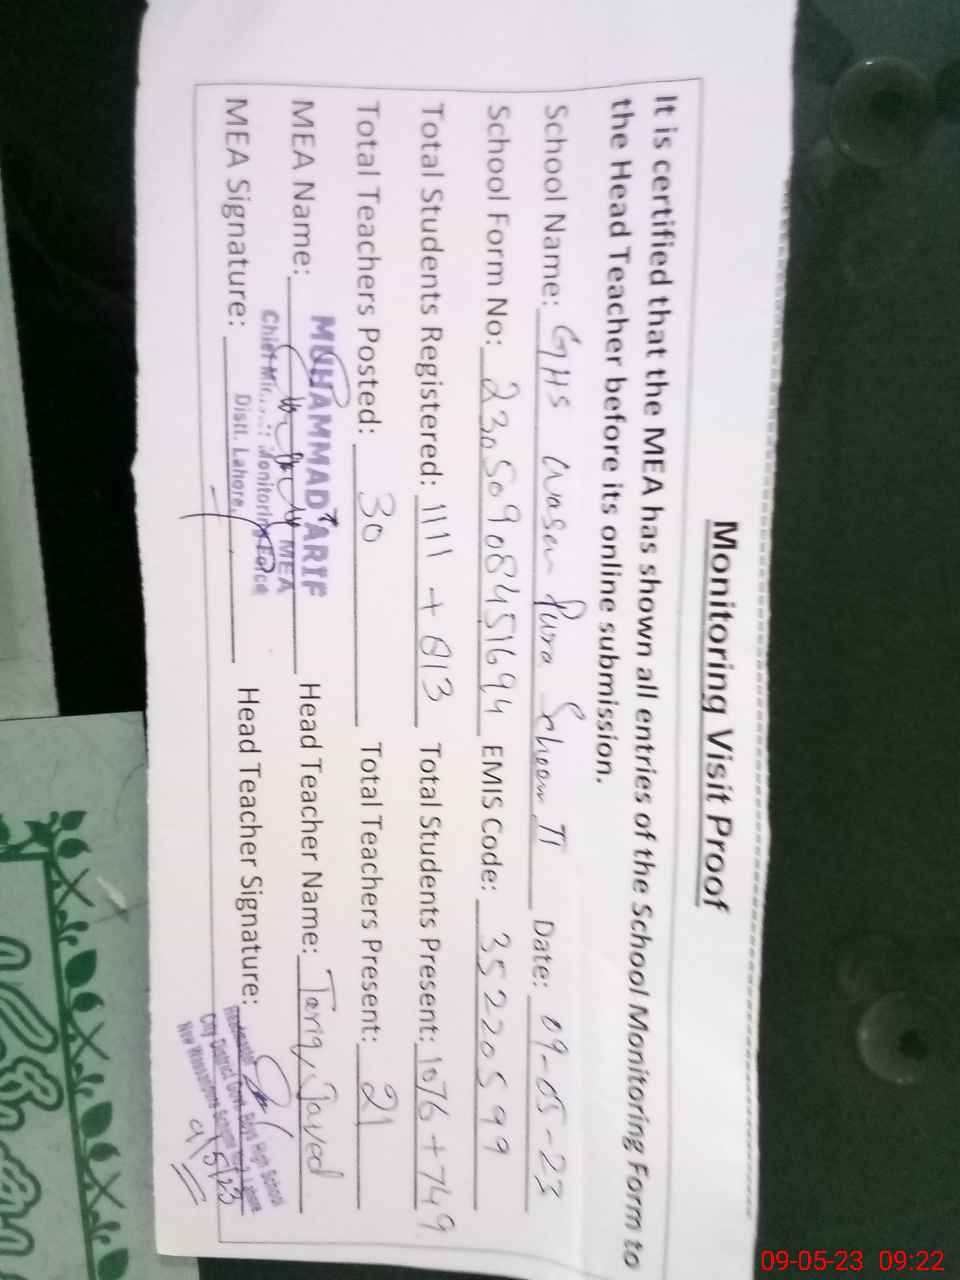 Monitoring Visit Proof
It is certified that the MEA has shown all entries of the School Monitoring Form to
the Head Teacher before its online submission.
School Name: GHS Wasan Pura Scheem II Date: 09-05-23
School Form No: 23050908451694 EMIS Code: 35220599
Total Students Registered: 1111 + 813 Total Students Present: 1076 + 749
Total Teachers Posted: 30 Total Teachers Present: 21
MEA Name: MUHAMMAD ARIF Head Teacher Name: Tariq Javed
MEA
Monitoring Force
Distt. Lahore.
MEA Signature: Head Teacher Signature:
City District Govt. Boys High School
9/5/23
09-05-23 09:22